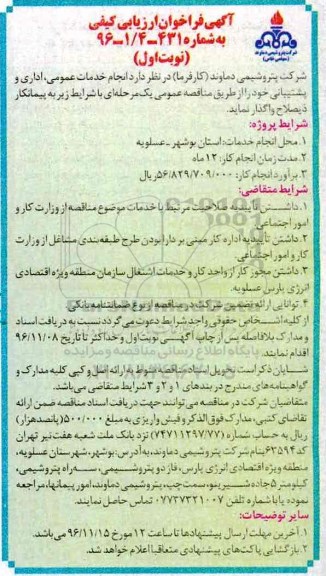 آگهی فراخوان ارزیابی کیفی
به شماره ۴۳۱-۱/۴-۹۶
(نوبت اول)
شرکت پتروشیمی دماوند
(سهامی خاص)
شرکت پتروشیمی دماوند (کارفرما) در نظر دارد انجام خدمات عمومی، اداری و
پشتیبانی خود را از طریق مناقصه عمومی یک مرحله‌ای با شرایط زیر به پیمانکار
ذیصلاح واگذار نماید.
شرایط پروژه:
۱. محل انجام خدمات: استان بوشهر - عسلویه
۲. مدت زمان انجام کار: ۱۲ ماه
۳. برآورد انجام کار: ۵۶/۸۲۹/۷۰۹/۰۰۰ ریال
شرایط متقاضی:
۱. داشتن تاییدیه صلاحیت مرتبط با خدمات موضوع مناقصه از وزارت کار و
امور اجتماعی
۲. داشتن تأییدیه اداره کار مبنی بر دارا بودن طرح طبقه‌بندی مشاغل از وزارت
کار و امور اجتماعی.
۳. داشتن مجوز کار از واحد کار و خدمات اشتغال سازمان منطقه ویژه اقتصادی
انرژی پارس عسلویه.
۴. توانایی ارائه تضمین شرکت در مناقصه از نوع ضمانتنامه بانکی
از کلیه اشخاص حقوقی واجد شرایط دعوت می‌گردد نسبت به دریافت اسناد
و مدارک بلافاصله پس از چاپ آگهی نوبت اول و حداکثر تا تاریخ ۹۶/۱۱/۰۸
اقدام نمایند.
شایان ذکر است تحویل اسناد مناقصه منوط به ارائه اصل و کپی کلیه مدارک و
گواهینامه‌های مندرج در بندهای ۱ و ۲ و ۳ شرایط متقاضی می‌باشد.
متقاضیان شرکت در مناقصه می‌توانند جهت دریافت اسناد مناقصه ضمن ارائه
تقاضای کتبی، مدارک فوق الذکر و فیش واریزی به مبلغ ۵۰۰/۰۰۰ (پانصد هزار)
ریال به حساب شماره (۷۴۷۱۱۲۹۷/۷۷) نزد بانک ملت شعبه هفت تیر تهران
کد ۶۳۵۹۴ بنام شرکت پتروشیمی دماوند، به آدرس: بوشهر، شهرستان عسلویه،
منطقه ویژه اقتصادی انرژی پارس، فاز دو پتروشیمی، سه راه پتروشیمی،
کیلومتر ۵ جاده شیرینو، سمت چپ، پتروشیمی دماوند، امور پیمانها، مراجعه
نموده یا با شماره تلفن ۰۷۷۳۷۳۲۱۰۰۷ تماس حاصل نمایند.
سایر توضیحات:
۱. آخرین مهلت ارسال پیشنهادها تا ساعت ۱۲ مورخ ۹۶/۱۱/۱۵ می‌باشد.
۲. بازگشایی پاکت‌های پیشنهادی متعاقبا اعلام خواهد شد.